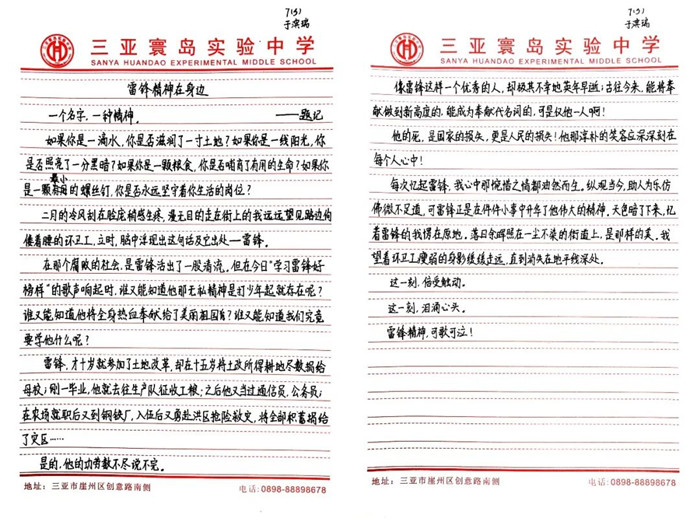 7(5)
于宾瑞
三亚寰岛实验中学
SANYA HUANDAO EXPERIMENTAL MIDDLE SCHOOL
雷锋精神在身边
一个名字，一种精神。 ——题记
如果你是一滴水，你是否滋润了一寸土地？如果你是一线阳光，你
是否照亮了一分黑暗？如果你是一颗粮食，你是否哺育了有用的生命？如果你
是一颗最小的螺丝钉，你是否永远坚守着你生活的岗位？
二月的冷风刮在脸庞稍感生疼，漫无目的走在街上的我远远望见路边佝
偻着腰的环卫工，立时，脑中浮现出这句话及它出处—雷锋。
在那个腐败的社会，是雷锋活出了一股清流。但在今日“学习雷锋好
榜样”的歌声响起时，谁又能知道他那无私精神是打少年起就存在呢？
谁又能知道他将全身热血奉献给了美丽祖国ⅰ？谁又能知道我们究竟
要学他什么呢？
雷锋，才十岁就参加了土地改革，却在十五岁将土改所得耕地尽数捐给
母校；刚一毕业，他就去往生产队征收工粮；之后他又当过通信员，公务员；
在农场就职后又到钢铁厂，入伍后又勇赴洪区抢险救灾，将全部积蓄捐给
了灾区……
是的，他的功劳数不尽说不完。
地址：三亚市崖州区创意路南侧 电话：0898-88898678
7(5)
于宾瑞
三亚寰岛实验中学
SANYA HUANDAO EXPERIMENTAL MIDDLE SCHOOL
像雷锋这样一个优秀的人，却极其不幸地英年早逝；古往今来，能将奉
献做到新高度的，能成为奉献代名词的，可是仅他一人啊！
他的死，是国家的损失，更是人民的损失！他那淳朴的笑容应深深刻在
每个人心中！
每次忆起雷锋，我心中那惋惜之情都油然而生。纵观当今，助人为乐仿
佛微不足道，可雷锋正是在件件小事中升华了他伟大的精神。天色暗了下来，忆
着雷锋的我愣在原地。落日余晖照在一尘不染的街道上，是那样的美。我
望着环卫工瘦弱的身影缓缓走远，直到消失在地平线深处。
这一刻，倍受触动。
这一刻，泪滴心头。
雷锋精神，可歌可泣！
地址：三亚市崖州区创意路南侧 电话：0898-88898678